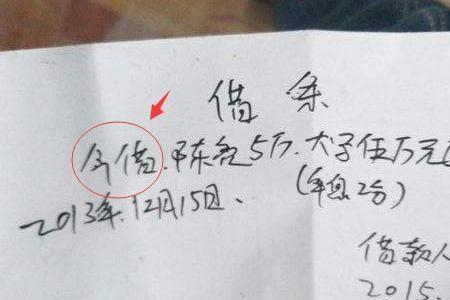 借条
今借.陈亮5万.大写伍万元
2013年.12月15日、(年息2分)
借款人
2015.